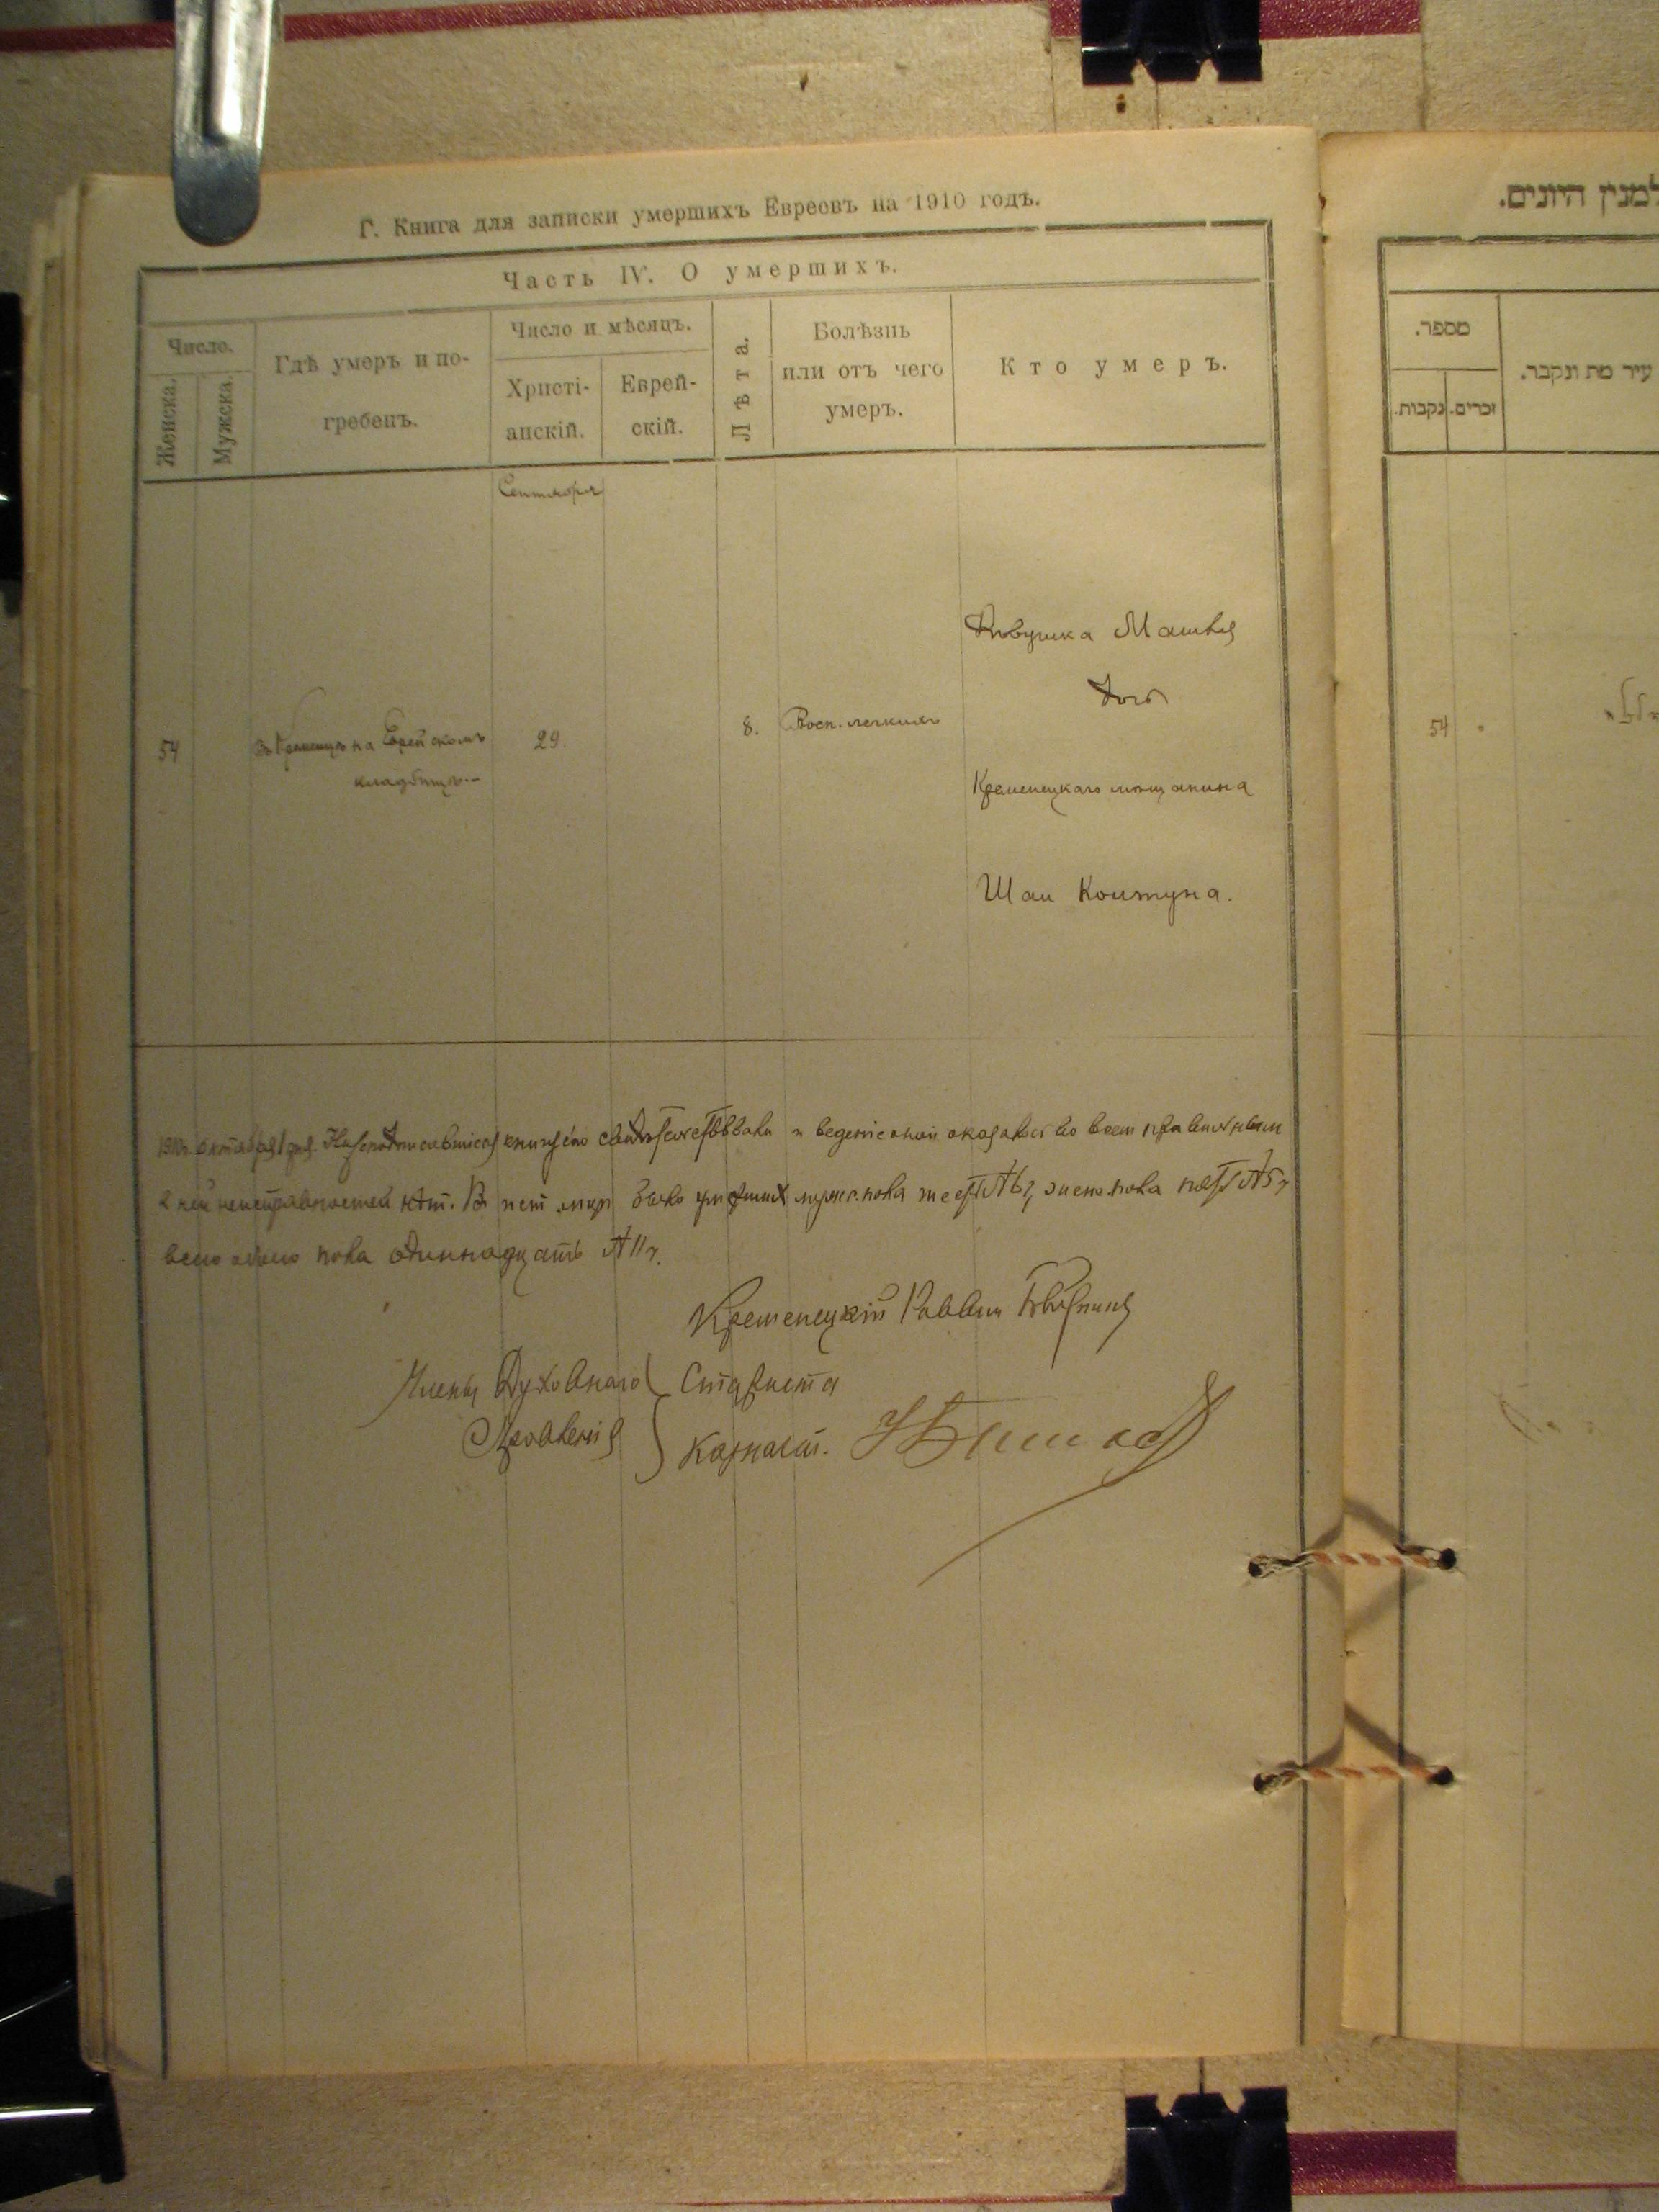 Г. Книга для записки умершихъ Евреевъ на 1910 годъ.
Часть IV. О умершихъ.
Число.
Женска.
Мужска.
Гдѣ умеръ и по-
гребенъ.
Число и мѣсяцъ.
Христі-
анскій.
Еврей-
скій.
Лѣта.
Болѣзнь
или отъ чего
умеръ.
Кто умеръ.
Сентября
54
въ Кременцѣ на Еврейскомъ
кладбищѣ.-
29.
8.
Восп. легкихъ
Дѣвушка
дочь
Кременецкаго мѣщанина
Шаи Койтуна.
1910 г. октября 1 дня. книгу сію свидѣтельствовали и веденіе оной оказалось во всем правильным
в ней неисправностей нѣт. В было умерших мужс. пола шесть №6, женс. пола пять №5,
всего обоего пола одиннадцать №11.
Кременецкій Раввин
Члены Духовнаго
Правленія
Староста
Казнач.
למנין היונים.
מספר.
נקבות.
זכרים.
עיר מת ונקבר.
54